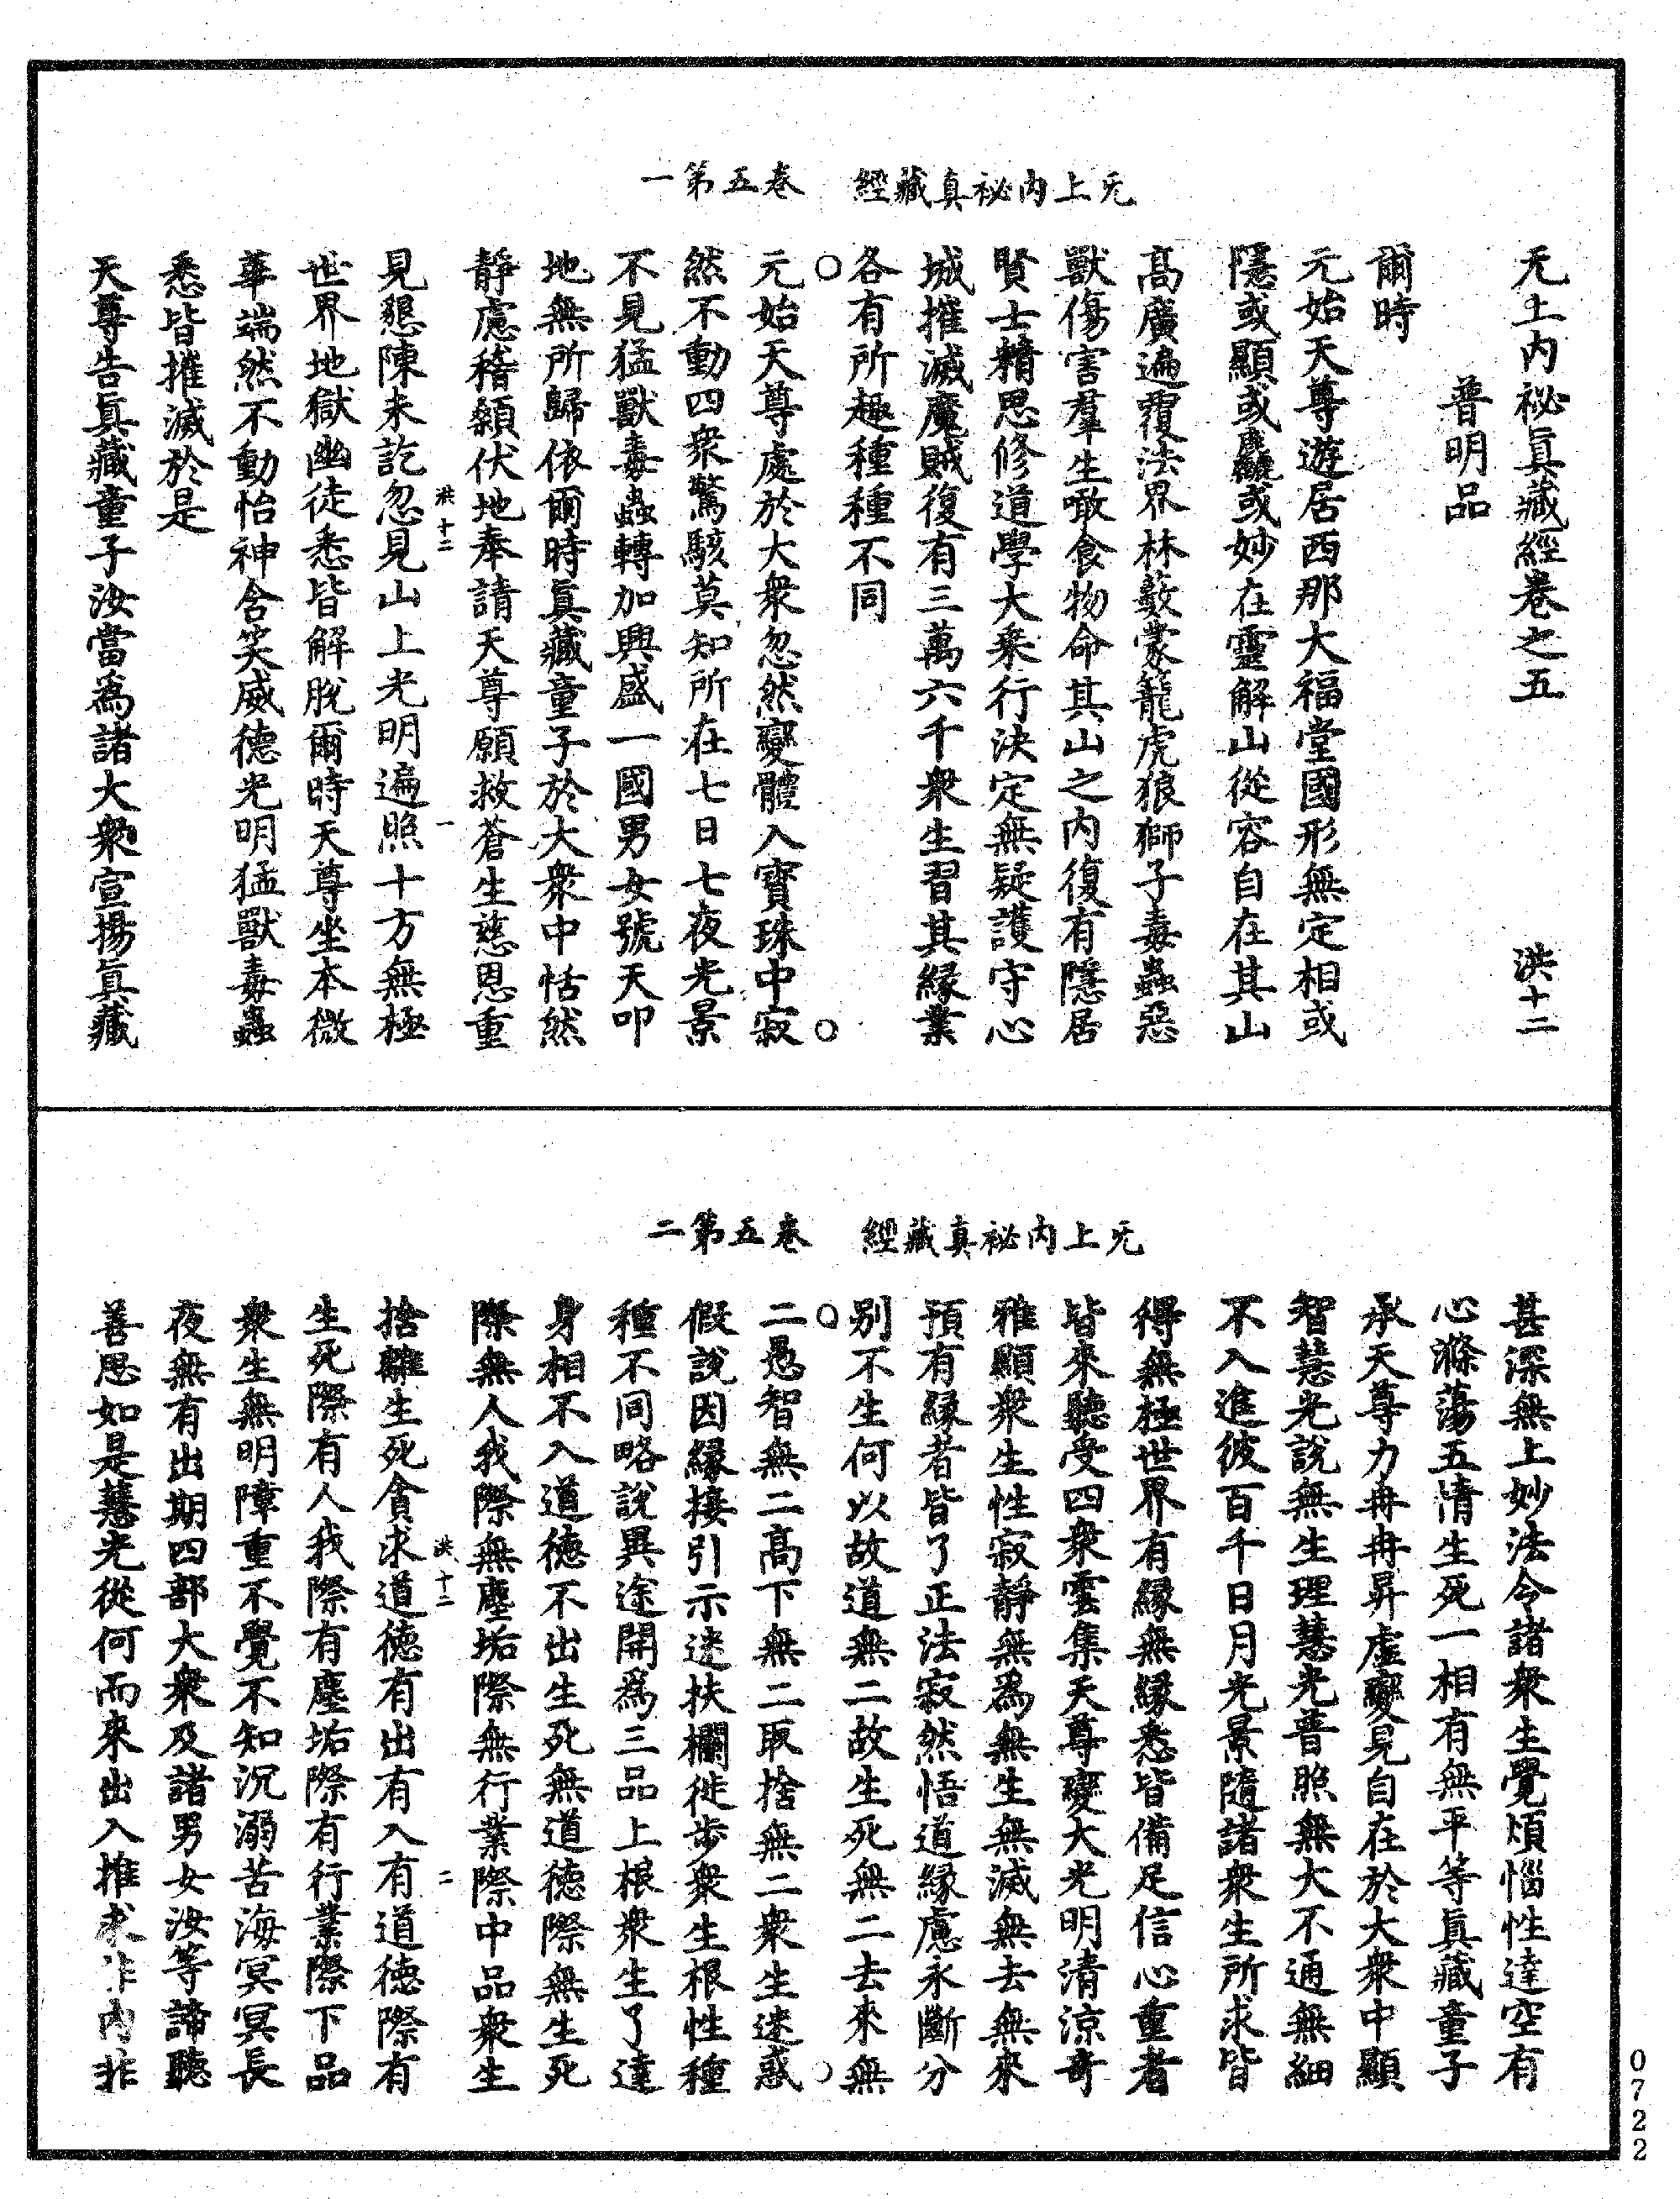 无上內祕真藏經　卷五第一
无上內祕眞藏經卷之五　洪十二
普明品
爾時
元始天尊遊居西那大福堂國形無定相或
隱或顯或麤或妙在靈解山從容自在其山
高廣遍覆法界林藪蒙籠虎狼獅子毒蟲惡
獸傷害羣生噉食物命其山之內復有隱居
賢士精思修道學大乘行決定無疑護守心
城摧滅魔賊復有三萬六千衆生習其緣業
各有所趣種種不同
元始天尊處於大衆忽然變體入寶珠中寂
然不動四衆驚駭莫知所在七日七夜光景
不見猛獸毒蟲轉加興盛一國男女號天叩
地無所歸依爾時眞藏童子於大衆中恬然
靜慮稽顙伏地奉請天尊願救蒼生慈恩重
洪十二　一
見懇陳未訖忽見山上光明遍照十方無極
世界地獄幽徒悉皆解脫爾時天尊坐本微
華端然不動怡神含笑威德光明猛獸毒蟲
悉皆摧滅於是
天尊告眞藏童子汝當爲諸大衆宣揚眞藏
无上內祕真藏經　卷五第二
甚深無上妙法令諸衆生覺煩惱性達空有
心滌蕩五情生死一相有無平等眞藏童子
承天尊力冉冉昇虛變見自在於大衆中顯
智慧光說無生理慧光普照無大不通無細
不入進彼百千日月光景隨諸衆生所求皆
得無極世界有緣無緣悉皆備足信心重者
皆來聽受四衆雲集天尊變大光明清涼奇
雅顯衆生性寂靜無爲無生無滅無去無來
預有緣者皆了正法寂然悟道緣慮永斷分
別不生何以故道無二故生死無二去來無
二愚智無二高下無二取捨無二衆生迷惑
假說因緣接引示迷扶欄徙步衆生根性種
種不同略說異途開爲三品上根衆生了達
身相不入道德不出生死無道德際無生死
際無人我際無塵垢際無行業際中品衆生
洪十二　二
捨離生死貪求道德有出有入有道德際有
生死際有人我際有塵垢際有行業際下品
衆生無明障重不覺不知沉溺苦海冥冥長
夜無有出期四部大衆及諸男女汝等諦聽
善思如是慧光從何而來出入推求非內非
0722